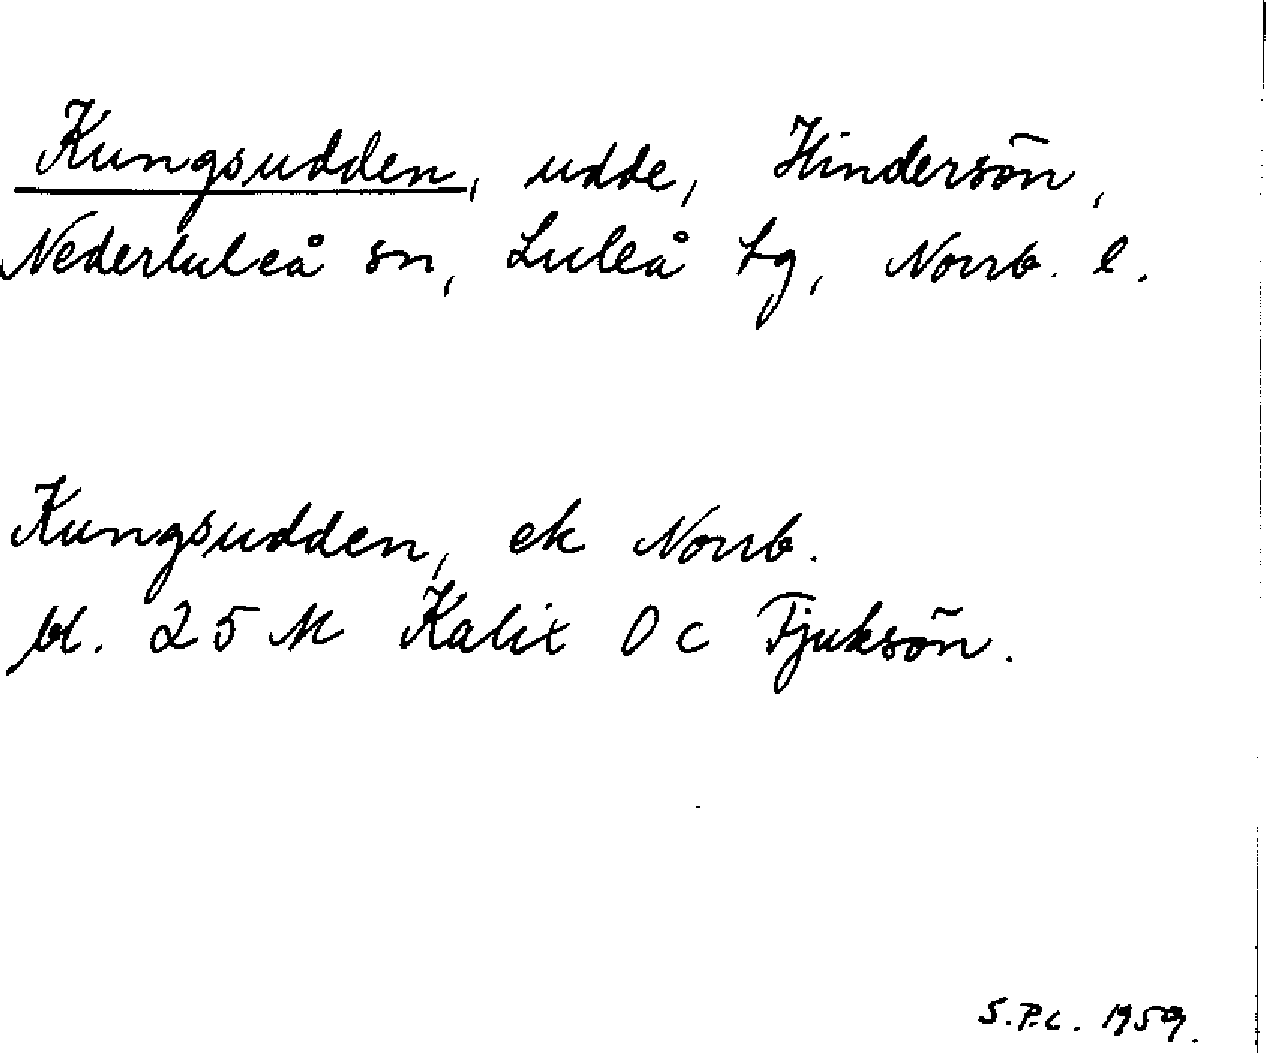 Kungsudden, udde, Hindersön,
Nederluleå sn, Luleå tg, Norrb. l.
Kungsudden, ek Norrb.
bl. 25 M Kalix 0 c Tjuksön.
S.P.L. 1959.